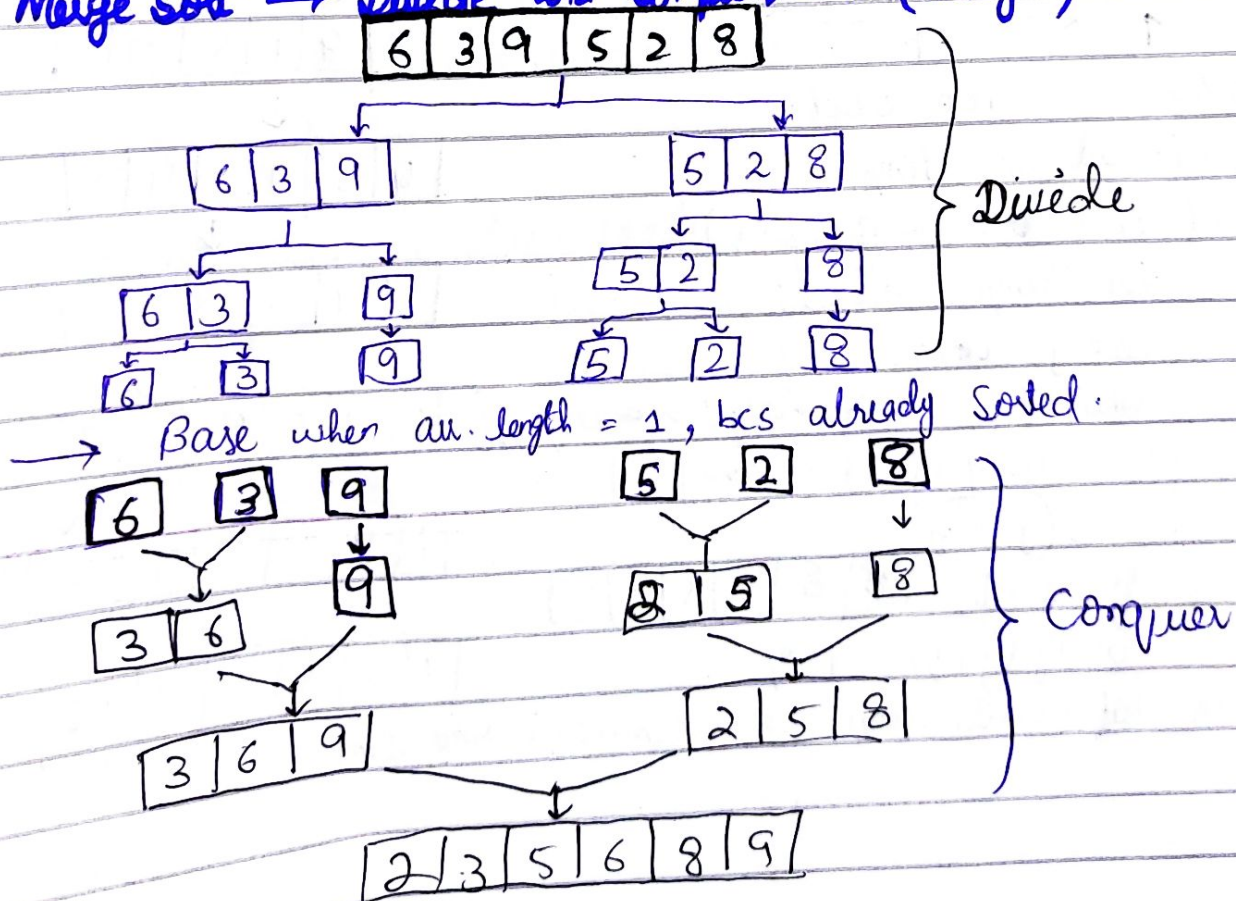 Merge Sort →
6 3 9 5 2 8
6 3 9 5 2 8
Divide
6 3 9 5 2 8
6 3 9 5 2 8
→ Base when arr. length = 1, bcs already sorted.
6 3 9 5 2 8
3 6 9 2 5 8
Conquer
3 6 9 2 5 8
2 3 5 6 8 9